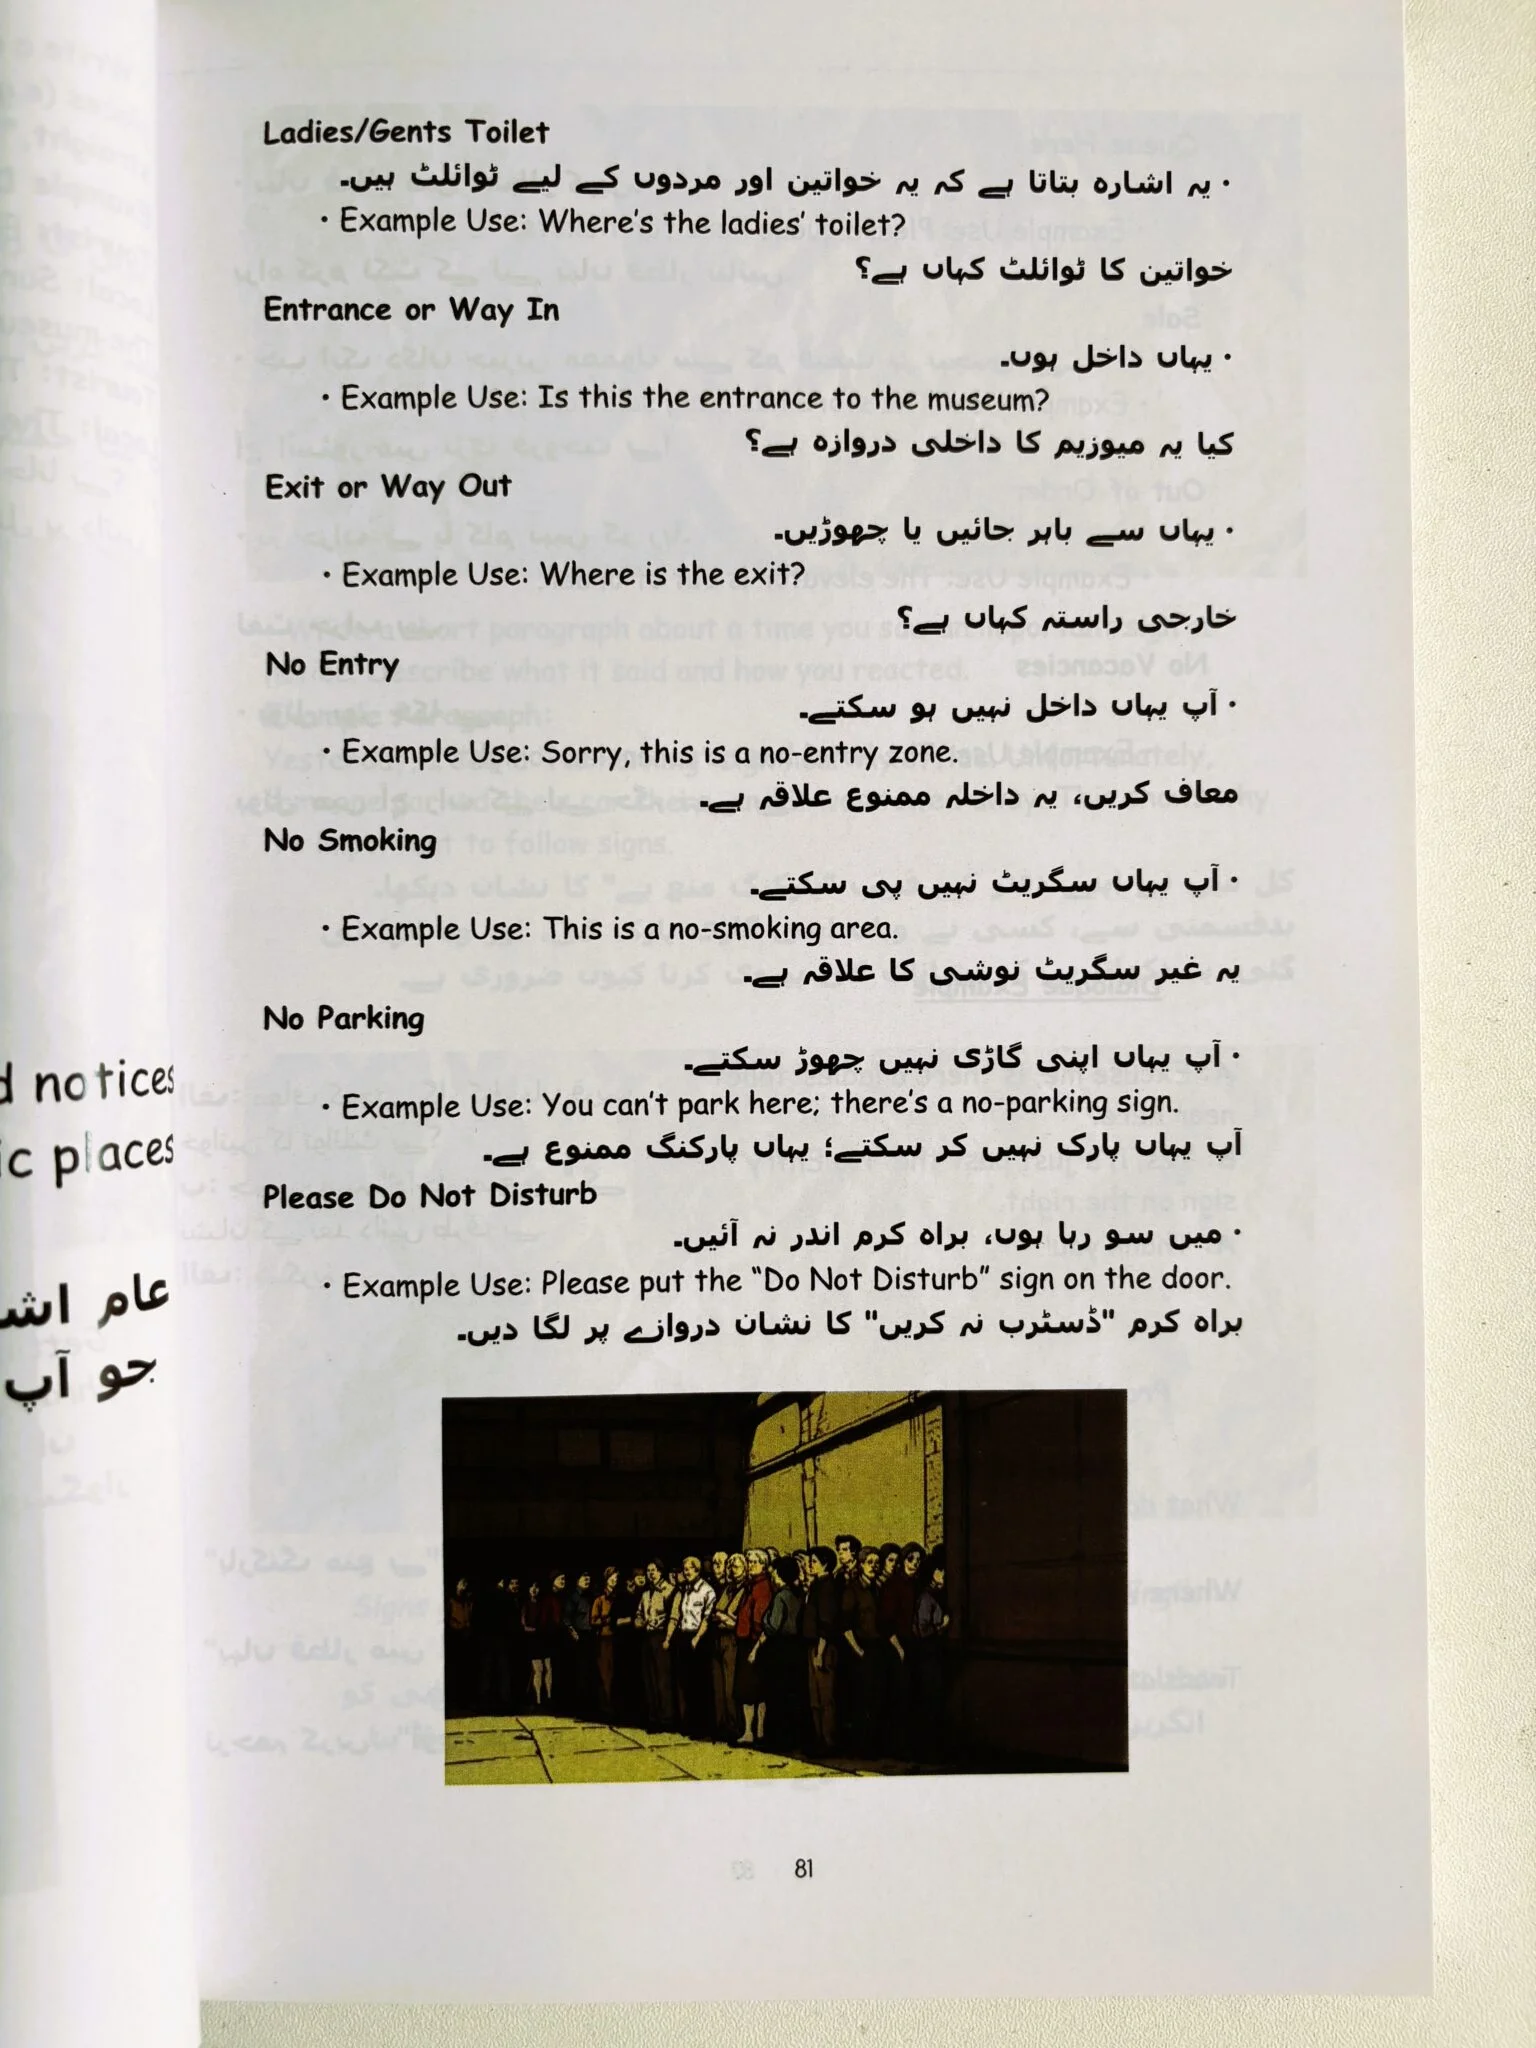 Ladies/Gents Toilet
· یہ اشارہ بتاتا ہے کہ یہ خواتین اور مردوں کے لیے ٹوائلٹ ہیں۔
· Example Use: Where's the ladies' toilet?
خواتین کا ٹوائلٹ کہاں ہے؟
Entrance or Way In
· یہاں داخل ہوں۔
· Example Use: Is this the entrance to the museum?
کیا یہ میوزیم کا داخلی دروازہ ہے؟
Exit or Way Out
· یہاں سے باہر جائیں یا چھوڑیں۔
· Example Use: Where is the exit?
خارجی راستہ کہاں ہے؟
No Entry
· آپ یہاں داخل نہیں ہو سکتے۔
· Example Use: Sorry, this is a no-entry zone.
معاف کریں، یہ داخلہ ممنوع علاقہ ہے۔
No Smoking
· آپ یہاں سگریٹ نہیں پی سکتے۔
· Example Use: This is a no-smoking area.
یہ غیر سگریٹ نوشی کا علاقہ ہے۔
No Parking
· آپ یہاں اپنی گاڑی نہیں چھوڑ سکتے۔
· Example Use: You can't park here; there's a no-parking sign.
آپ یہاں پارک نہیں کر سکتے؛ یہاں پارکنگ ممنوع ہے۔
Please Do Not Disturb
· میں سو رہا ہوں، براہ کرم اندر نہ آئیں۔
· Example Use: Please put the "Do Not Disturb" sign on the door.
براہ کرم "ڈسٹرب نہ کریں" کا نشان دروازے پر لگا دیں۔
81
notices
places
عام
جو آپ